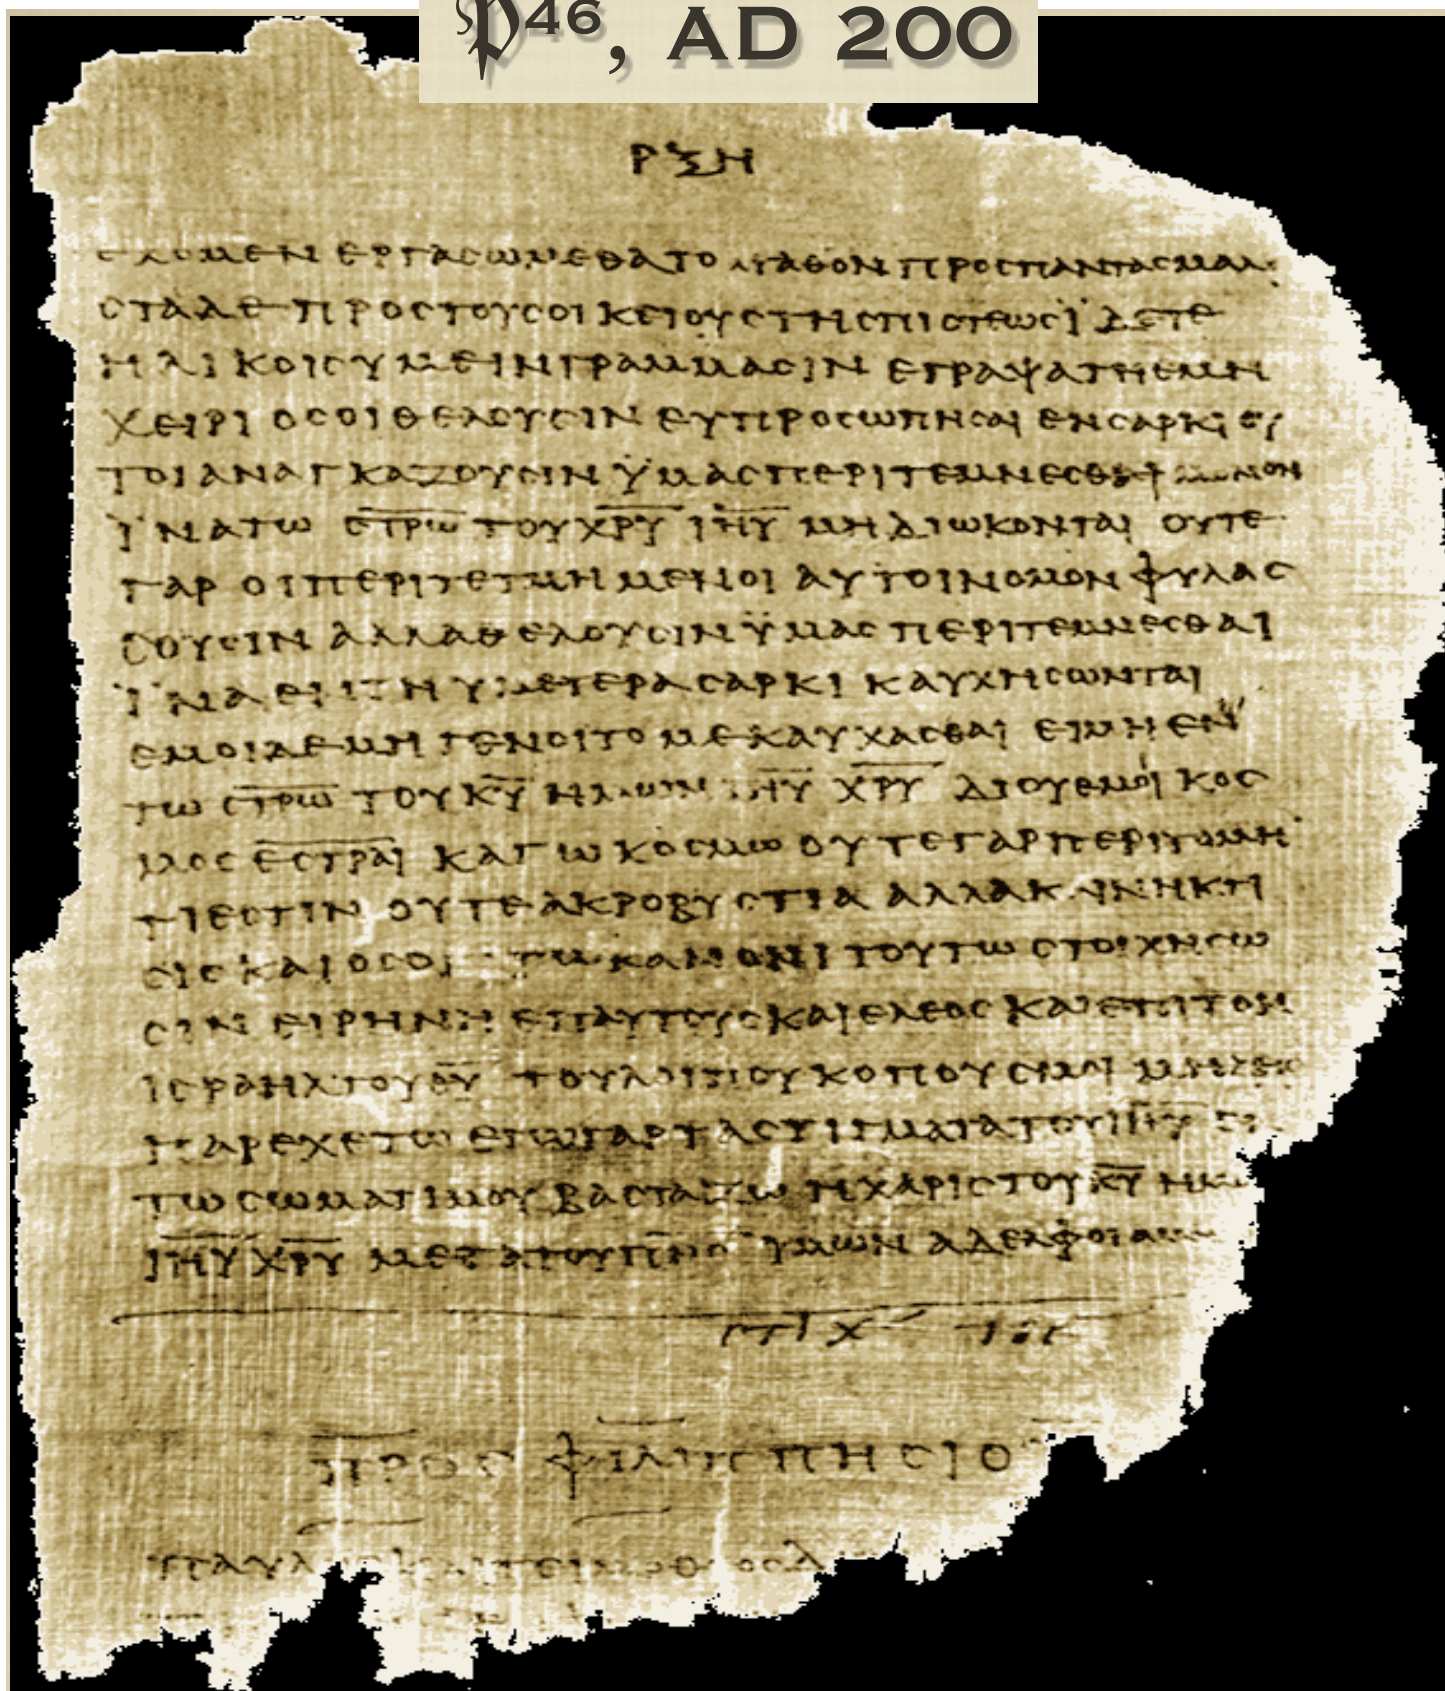 𝔓46, AD 200
ΡΞΗ
ΕΧΟΜΕΝ ΕΡΓΑϹΩΜΕΘΑ ΤΟ ΑΓΑΘΟΝ ΠΡΟϹ ΠΑΝΤΑϹ ΜΑΛΙ
ϹΤΑ ΔΕ ΠΡΟϹ ΤΟΥϹ ΟΙΚΕΙΟΥϹ ΤΗϹ ΠΙϹΤΕΩϹ ΪΔΕΤΕ
ΗΛΙΚΟΙϹ ΥΜΕΙΝ ΓΡΑΜΜΑϹΙΝ ΕΓΡΑΨΑ ΤΗ ΕΜΗ
ΧΕΙΡΙ ΟϹΟΙ ΘΕΛΟΥϹΙΝ ΕΥΠΡΟϹΩΠΗϹΑΙ ΕΝ ϹΑΡΚΙ ΟΥ
ΤΟΙ ΑΝΑΓΚΑΖΟΥϹΙΝ ΫΜΑϹ ΠΕΡΙΤΕΜΝΕϹΘΑΙ ΜΟΝΟΝ
ΪΝΑ ΤΩ Ϲ̅Τ̅Ρ̅Ω̅ ΤΟΥ Χ̅Ρ̅Υ̅ Ι̅Η̅Υ̅ ΜΗ ΔΙΩΚΟΝΤΑΙ ΟΥΤΕ
ΓΑΡ ΟΙ ΠΕΡΙΤΕΤΜΗΜΕΝΟΙ ΑΥΤΟΙ ΝΟΜΟΝ ΦΥΛΑϹ
ϹΟΥϹΙΝ ΑΛΛΑ ΘΕΛΟΥϹΙΝ ΫΜΑϹ ΠΕΡΙΤΕΜΝΕϹΘΑΙ
ΪΝΑ ΕΝ ΤΗ ΥΜΕΤΕΡΑ ϹΑΡΚΙ ΚΑΥΧΗϹΩΝΤΑΙ
ΕΜΟΙ ΔΕ ΜΗ ΓΕΝΟΙΤΟ ΜΕ ΚΑΥΧΑϹΘΑΙ ΕΙ ΜΗ ΕΝ
ΤΩ Ϲ̅Τ̅Ρ̅Ω̅ ΤΟΥ Κ̅Υ̅ ΗΜΩΝ Ι̅Η̅Υ̅ Χ̅Ρ̅Υ̅ ΔΙ ΟΥ ΕΜΟΙ ΚΟϹ
ΜΟϹ Ε̅Ϲ̅Τ̅Ρ̅Α̅Ι̅ ΚΑΓΩ ΚΟϹΜΩ ΟΥΤΕ ΓΑΡ ΠΕΡΙΤΟΜΗ
ΤΙ ΕϹΤΙΝ ΟΥΤΕ ΑΚΡΟΒΥϹΤΙΑ ΑΛΛΑ ΚΑΙΝΗ ΚΤΙ
ϹΙϹ ΚΑΙ ΟϹΟΙ ΤΩ ΚΑΝΟΝΙ ΤΟΥΤΩ ϹΤΟΙΧΗϹΩ
ϹΙΝ ΕΙΡΗΝΗ ΕΠ ΑΥΤΟΥϹ ΚΑΙ ΕΛΕΟϹ ΚΑΙ ΕΠΙ ΤΟΝ
ΙϹΡΑΗΛ ΤΟΥ Θ̅Υ̅ ΤΟΥ ΛΟΙΠΟΥ ΚΟΠΟΥϹ ΜΟΙ ΜΗΔΕΙϹ
ΠΑΡΕΧΕΤΩ ΕΓΩ ΓΑΡ ΤΑ ϹΤΙΓΜΑΤΑ ΤΟΥ Ι̅Η̅Υ̅ ΕΝ
ΤΩ ϹΩΜΑΤΙ ΜΟΥ ΒΑϹΤΑΖΩ Η ΧΑΡΙϹ ΤΟΥ Κ̅Υ̅ ΗΜΩ
Ι̅Η̅Υ̅ Χ̅Ρ̅Υ̅ ΜΕΤΑ ΤΟΥ Π̅Ν̅Ϲ̅ ΥΜΩΝ ΑΔΕΛΦΟΙ ΑΜΗΝ
ϹΤΙΧ
ΠΡΟϹ ΦΙΛΙΠΠΗϹΙΟ
ΠΑΥΛΟϹ ΚΑΙ ΤΕΙΜΟΘΕΟϹ Δ